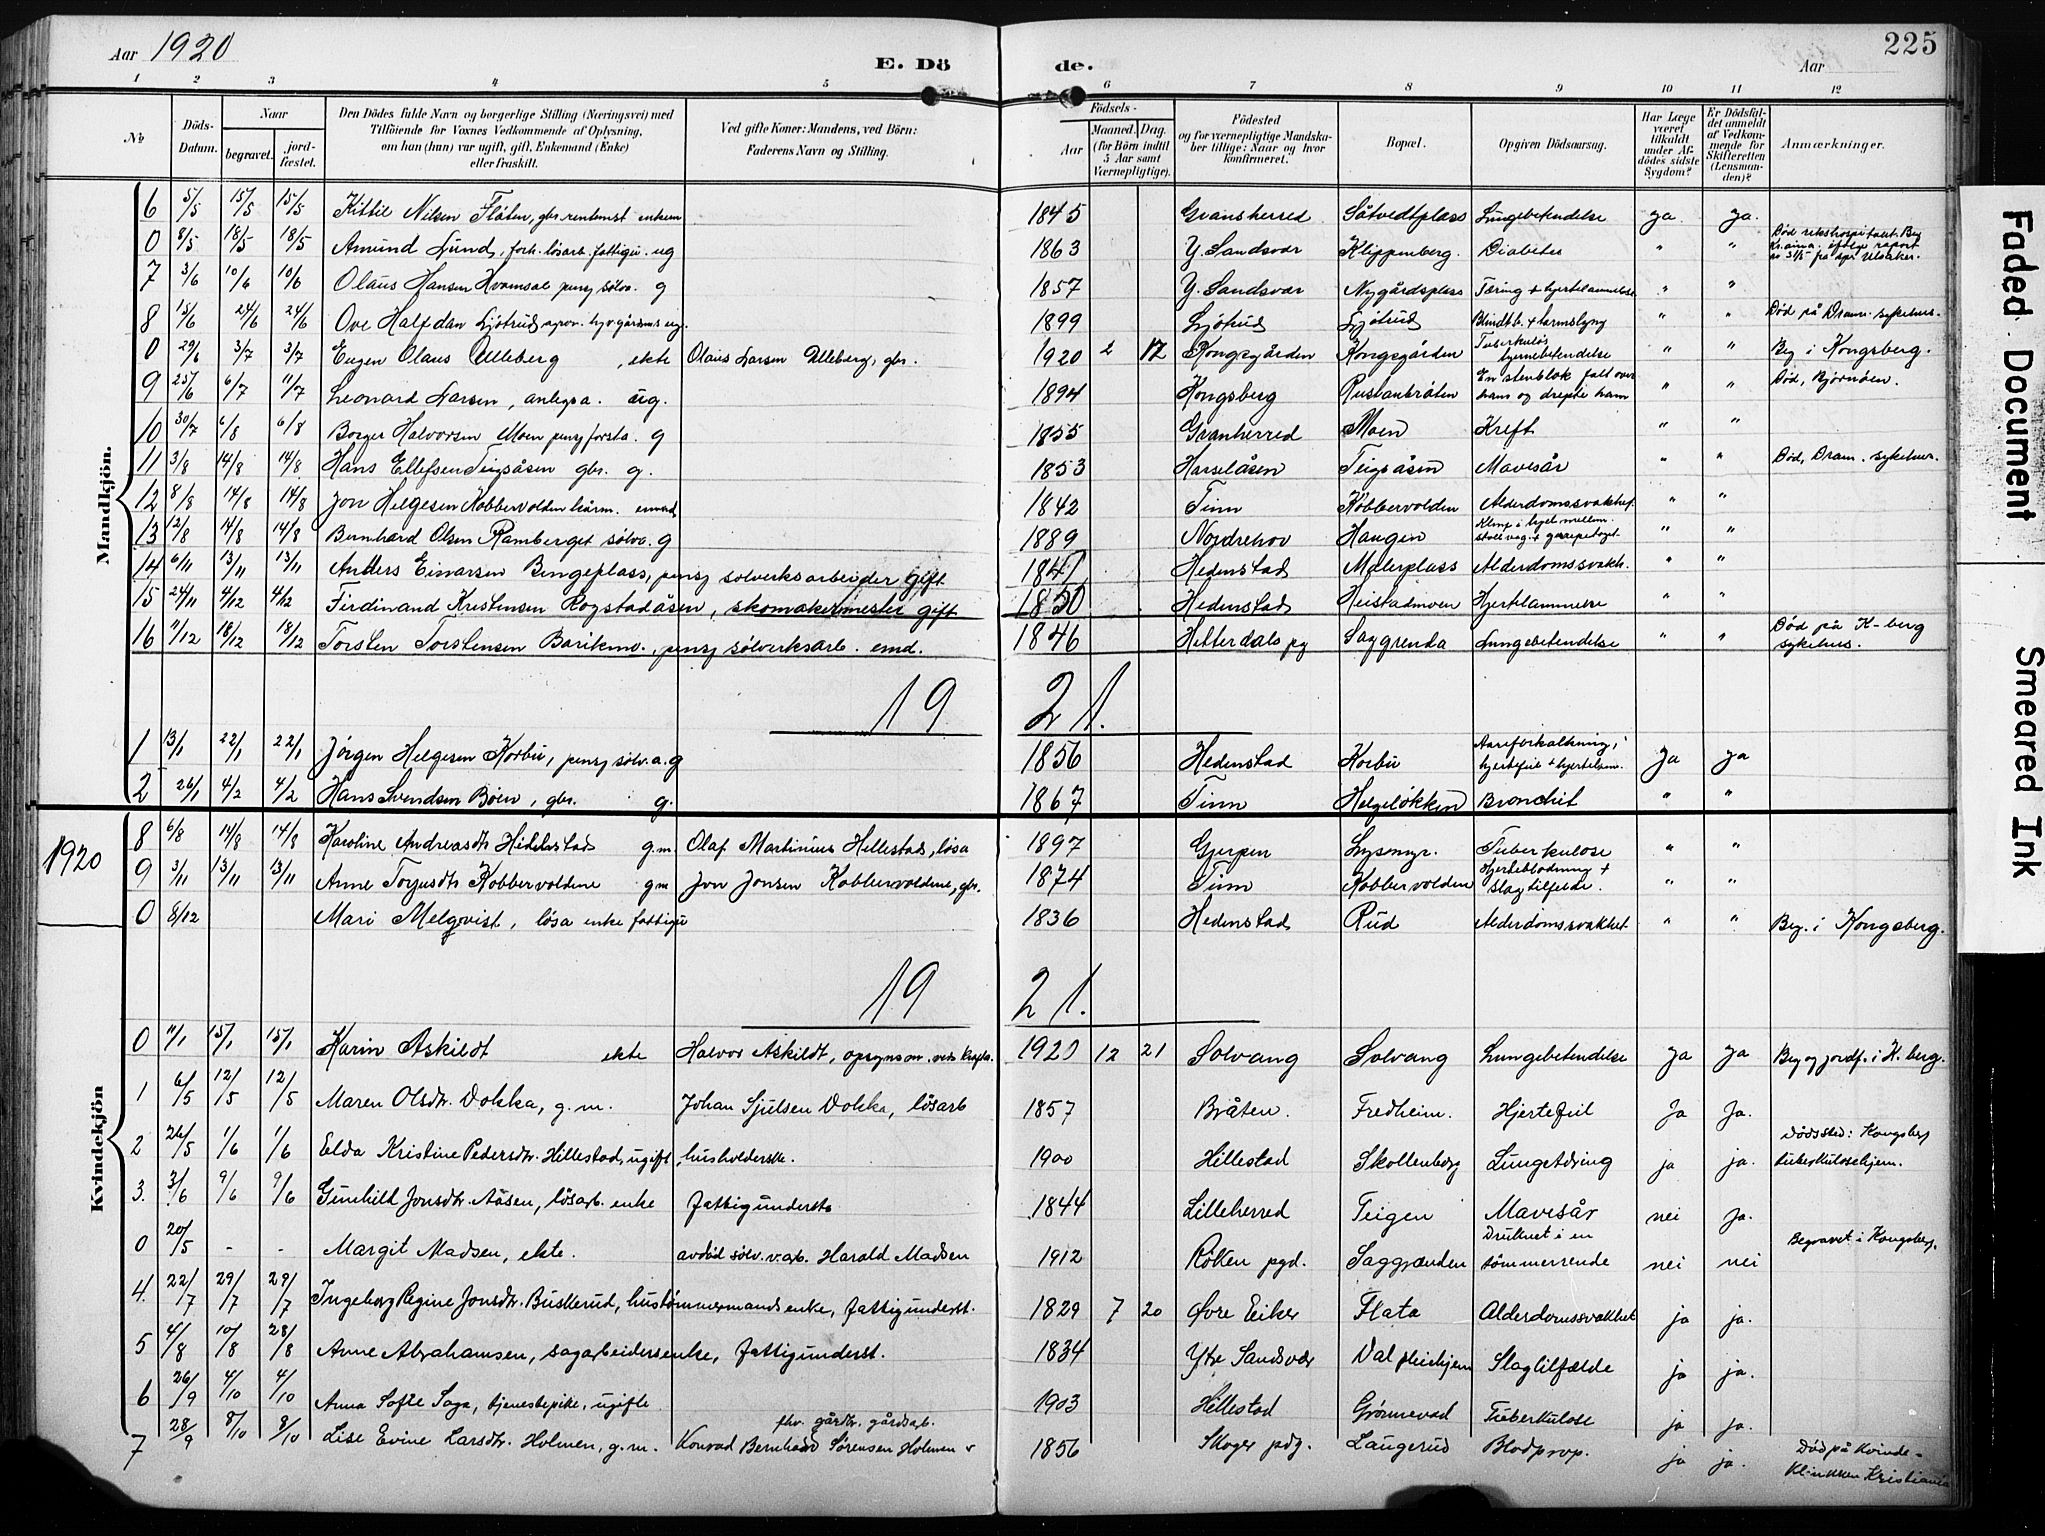 Aar 1920
E. Dö
de.
Aar
225
1 2 3 4 5 6 7 8 9 10 11 12
№
Döds-Datum.
Naar
begravet.
jord-fæstet.
Den Dödes fulde Navn og borgerlige Stilling (Næringsvei) med
Tilföiende for Voxnes Vedkommende af Oplysning,
om han (hun) var ugift, gift, Enkemand (Enke)
eller fraskilt.
Ved gifte Koner: Mandens, ved Börn:
Faderens Navn og Stilling.
Födsels-
Aar
Maaned. Dag.
(for Börn indtil
5 Aar samt
Værnepligtige).
Födested
og for værnepligtige Mandska-
ber tillige: Naar og hvor
konfirmeret.
Bopæl.
Opgiven Dödsaarsag.
Har Læge
været
tilkaldt
under Af-
dödes sidste
Sygdom?
Er Dödsfal-
det anmeldt
af Vedkom-
mende for
Skifteretten
(Lensman-
den)?
Anmærkninger.
Mandkjön.
6 5/5 15/5 15/5 Kittil Nilsen Flåten, gbr. enkem 1845 Gransherred Såtvedtplass Lungebetendelse ja ja.
0 8/5 18/5 18/5 Amund Lund, forh. lösarb. fattigu. ug 1863 Y. Sandsvær Klippenberg. Diabetes " " Död rikshospitalet. Beg
7 3/6 10/6 10/6 Olaus Hansen Kvamsal pensj sölva. g 1857 Y. Sandsvær Nygårdsplass Tæring + hjertelammelse " "
8 15/6 24/6 24/6 Ove Halfdan Ljöterud ug. 1899 Ljöterud Ljöterud Blindtb. + tarmslyng " " Död på Dram. sykehus.
0 29/6 3/7 3/7 Eugen Olaus Ulleberg, ekte Olaus Larsen Ulleberg, gbr. 1920 2 12 Kongsgården Kongsgården Tuberkulös hjernebetendelse " " Beg i Kongsberg.
9 25/6 6/7 11/7 Leonard Larsen, anlegsa. ug. 1894 Kongsberg Rustanbråten En stenblok falt over ham og drepte ham " " Död, Björnöen.
10 30/7 6/8 6/8 Borger Halvorsen Moen pensj forsta. g 1855 Granherred Moen Kreft " "
11 3/8 14/8 14/8 Hans Ellefsen Teigsåsen gbr. g. 1853 Harselåsen Teigsåsen Mavesår " " Död, Dram. sykehus.
12 8/8 14/8 14/8 Jon Helgesen Kobbervolden kårm. emand 1842 Tinn Kobbervolden Alderdomssvakhet. " "
13 12/8 14/8 14/8 Bernhard Olsen Ramberget sölva. g 1889 Norderhov Haugen " "
14 6/11 13/11 13/11 Anders Einarsen Bingeplass, pensj sölverksarbeider gift 1847 Hedenstad Malerplass Alderdomssvakh. " "
15 24/11 4/12 4/12 Ferdinand Kristensen Rogstadåsen, skomakermester gift 1850 Hedenstad Heistadmoen Hjertelammelse " "
16 11/12 18/12 18/12 Torsten Torstensen Barikmo., pensj sölverksarb. emd. 1846 Hitterdals pg Saggrenda Lungebetendelse " " Död på K-berg sykehus.
19 21.
1 13/1 22/1 22/1 Jörgen Helgesen Korbu, pensj sölv.a. g 1856 Hedenstad Korbu Aareforkalkning, hjertefeil + hjertelam. Ja ja
2 26/1 4/2 4/2 Hans Svendsen Böen, gbr. g. 1867 Tinn Helgelökken Bronchit " "
1920
Kvindekjön
8 6/8 14/8 14/8 Karoline Andreasdtr Hillestad g.m. Olaf Martinius Hellestad, lösa 1897 Gjerpen Lysmyr. Tuberkulose " "
9 3/11 13/11 13/11 Anne Torjusdtr Kobbervoldene gm Jon Jonsen Kobbervoldene, gbr. 1874 Tinn Kobbervolden Hjerteblödning + slagtilfelde. " "
0 8/12 Mari Melqvist, lösa enke fattigu 1836 Hedenstad Rud Alderdomssvakhet " " Beg. i Kongsberg.
19 21.
0 11/1 15/1 15/1 Karin Askildt ekte Halvor Askildt, opsynsm. ved 1920 12 21 Solvang Solvang Lungebetendelse ja ja Beg og jordf. i K.berg.
1 6/5 12/5 12/5 Maren Olsdtr. Dokka, g.m. Johan Sjulsen Dokka, lösarb 1857 Bråten. Fredheim. Hjertefeil Ja Ja.
2 26/5 1/6 1/6 Elda Kristine Pedersdtr. Hillestad, ugift, husholderske. 1900 Hillestad Skollenborg Lungetæring ja ja. Dödssted: Kongsberg tuberkulosehjem.
3. 3/6 9/6 9/6 Gunhild Jonsdtr Aasen, lösarb. enke fattigunderst. 1844 Lilleherred Teigen Mavesår nei ja.
0 20/5 - - Margit Madsen, ekte. avdöd sölv.v.arb. Harald Madsen 1912 Röken pgd. Saggrenden Druknet i en tömmerrende nei nei Begravet i Kongsberg.
4. 22/7 29/7 29/7 Ingeborg Regine Jonsdtr. Buskerud, hustömmermandsenke, fattigunderst. 1829 7 20 Øvre Eiker Flata Alderdomssvakhet ja ja.
5 4/8 10/8 28/8 Anne Abrahamsen, sagarbeidersenke, fattigunderst. 1834 Ytre Sandsvær Dal pleiehjem Slagtilfælde ja ja.
6 26/9 4/10 4/10 Anna Sofie Saga, tjenestepike, ugifte 1903 Hillestad Grönnevad Tuberkulose ja ja.
7 28/9 8/10 8/10 Lise Evine Larsdtr. Holmen, g.m. Konrad Bernhard Sörensen Holmen fhv. gårdbr. gårdsarb. 1856 Skoger pdg. Laugerud Blodprop. ja ja. Död på Kvinde-Klinikken Kristiania
Faded Document
Smeared Ink